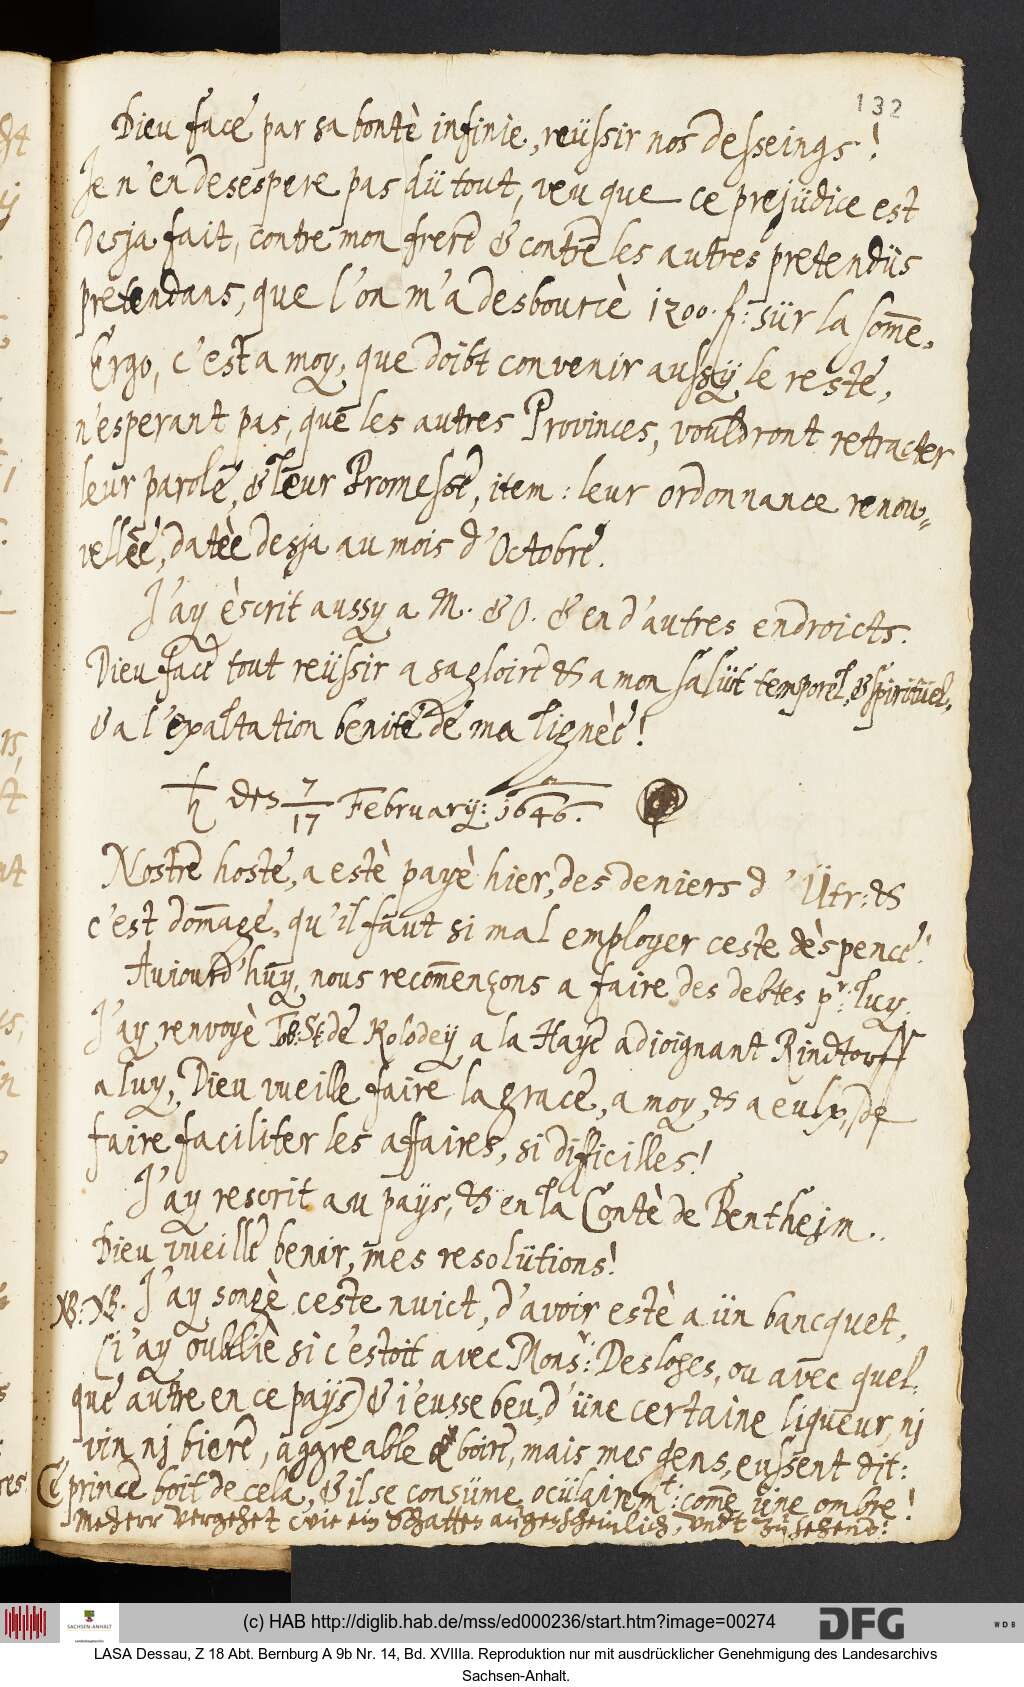 132
Dieu face par sa bontè infinie, reüssir nos desseings!
Je n'en desespere pas dü tout, veu que ce prejüdice est
desja fait, contre mon frere & contre les autres pretendüs
pretendans, que l'on m'a desbourcè 1200. f: sür la som̄e.
Ergo, c'est a moy, que doibt convenir aussy le reste,
n'esperant pas, que les autres Provinces, vouldront retracter
leur parole, & leur Promesse, item: leur ordonnance renou¬
vellèe, datèe desja au mois d'Octobre.
J'ay èscrit aussy a M. & O. & en d'autres endroicts.
Dieu face tout reüssir a sa gloire & a mon salüt temporel, & spiritüel,
& a l'exaltation benite de ma lignèe!
♄ des 7/17 February: 1646.
Nostre hoste, a estè payè hier, des deniers d'Ütr: &
c'est dom̄age, qu'il faut si mal employer ceste dèspence!
Aujourd'huy, nous recom̄ençons a faire des debtes pr: luy.
J'ay renvoyè Tob: St: de Kolodey a la Haye adjoignant Rindtorff
a luy, Dieu vueille faire la grace, a moy, & a eulx, de
faire faciliter les affaires, si difficilles!
J'ay rescrit au pays, & en la Contè de Bentheim..
Dieu vueille benir, mes resolütions!
NB: NB. J'ay songè ceste nuict, d'avoir estè a ün bancquet,
(j'ay oubliè si c'estoit avec Monsr: Desloges, ou avec quel¬
que autre en ce pays) & i'eusse beu, d'üne certaine liqueur, nj
vin nj biere, aggreable a boire, mais mes gens, eussent dit:
Ce prince boit de cela, & il se consüme ocülairemt: com̄e üne ombre!
Mein herr vergehet wie ein Schatten augenscheinlich, undt zusehens!
(c) HAB http://diglib.hab.de/mss/ed000236/start.htm?image=00274
SACHSEN-ANHALT
DFG
WDB
LASA Dessau, Z 18 Abt. Bernburg A 9b Nr. 14, Bd. XVIIIa. Reproduktion nur mit ausdrücklicher Genehmigung des Landesarchivs
Sachsen-Anhalt.